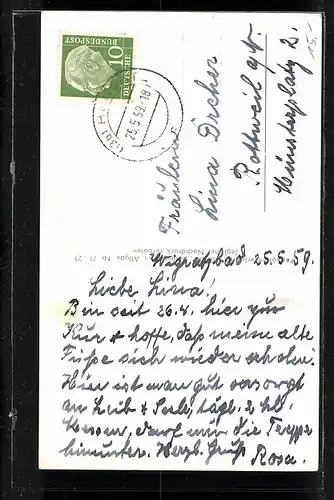 15.-
DEUTSCHE
BUNDESPOST
10
25.5.59.-18
Fräulein
Lina Dreher
Rottweil a/N
Münsterplatz 2.
Allgäu Nr. 21-23
Jeglicher Nachdruck verboten
Wigratzbad 25.5.59
Liebe Lina!
Bin seit 26.4. hier zur
Kur & hoffe, daß meine alte
Füße sich wieder erholen.
Hier ist man gut versorgt
an Leib & Seele, tägl. 2 hl.
Messen, darf nur die Treppe
hinunter. Herzl. Gruß
Rosa.